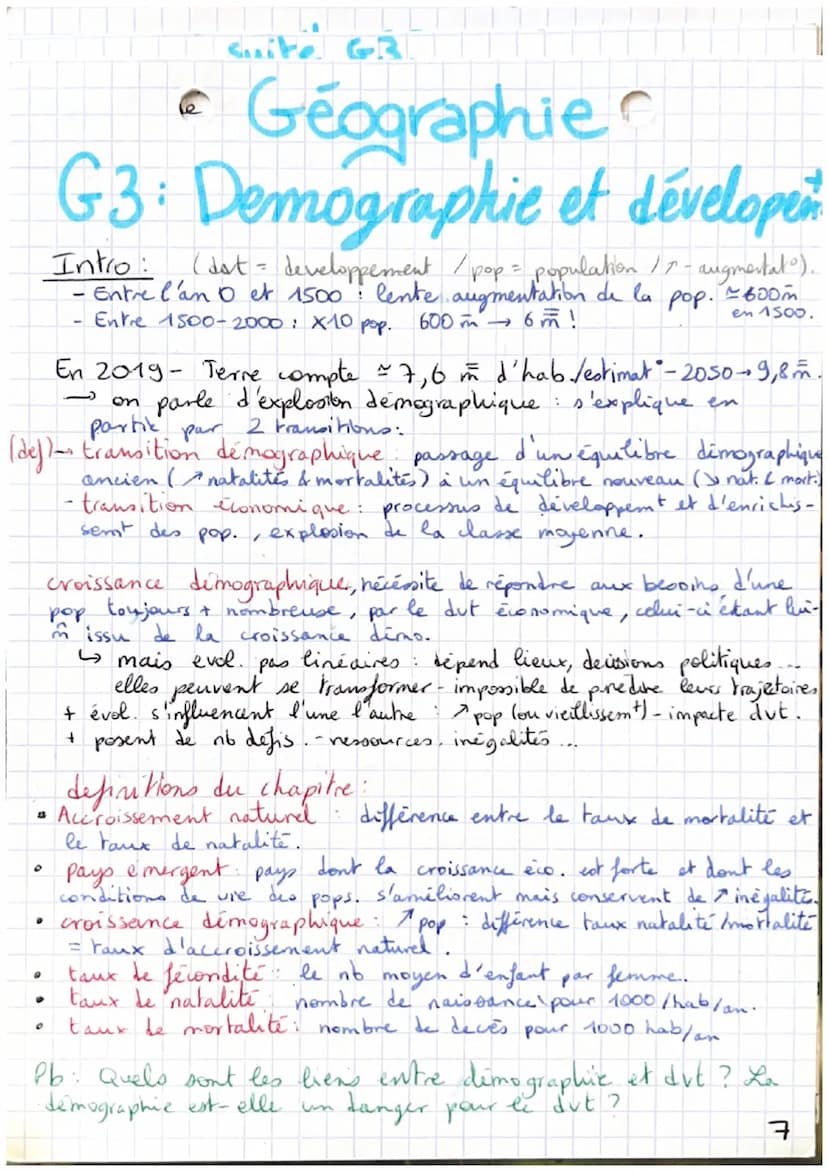 suite G3
le
Géographie
G3: Demographie et dévelopemt
Intro : (dvt = developpement / pop = population / ↗ - augmentat°).
- Entre l'an 0 et 1500 : lente augmentation de la pop. ≃ 600 m̄
en 1500.
- Entre 1500-2000 : X10 pop. 600 m̄ → 6 m̿ !
En 2019 - Terre compte ≃ 7,6 m̿ d'hab./estimat° - 2050 → 9,8 m̿.
→ on parle d'explosion démographique : s'explique en
partie par 2 transitions :
(def) → transition démographique : passage d'un équilibre démographique
ancien (↗ natalités & mortalités) à un équilibre nouveau (↘ nat. & mort.)
- transition économique : processus de développemt et d'enrichis-
semt des pop., explosion de la classe moyenne.
croissance démographique, nécéssite de répondre aux besoins d'une
pop toujours + nombreuse, par le dvt économique, celui-ci étant lui-
m̂ issu de la croissance démo.
↳ mais evol. pas linéaires : dépend lieux, decisions politiques...
elles peuvent se transformer - impossible de predire leurs trajetoires
+ évol. s'influencent l'une l'autre : ↗ pop (ou vieillissemt) - impacte dvt.
+ posent de nb defis. - ressources, inégalités ...
definitions du chapitre :
Accroissement naturel : différence entre le taux de mortalité et
le taux de natalité.
• pays émergent : pays dont la croissance éco. est forte et dont les
conditions de vie des pops. s'améliorent mais conservent de ↗ inégalités.
• croissance démographique : ↗ pop : différence taux natalité/mortalité
= taux d'accroissement naturel.
• taux de fécondité : le nb moyen d'enfant par femme.
• taux de natalité : nombre de naissance\ pour 1000/hab/an.
• taux de mortalité : nombre de decès pour 1000 hab/an
Pb : Quels sont les liens entre démographie et dvt ? La
démographie est-elle un danger pour le dvt ?
7